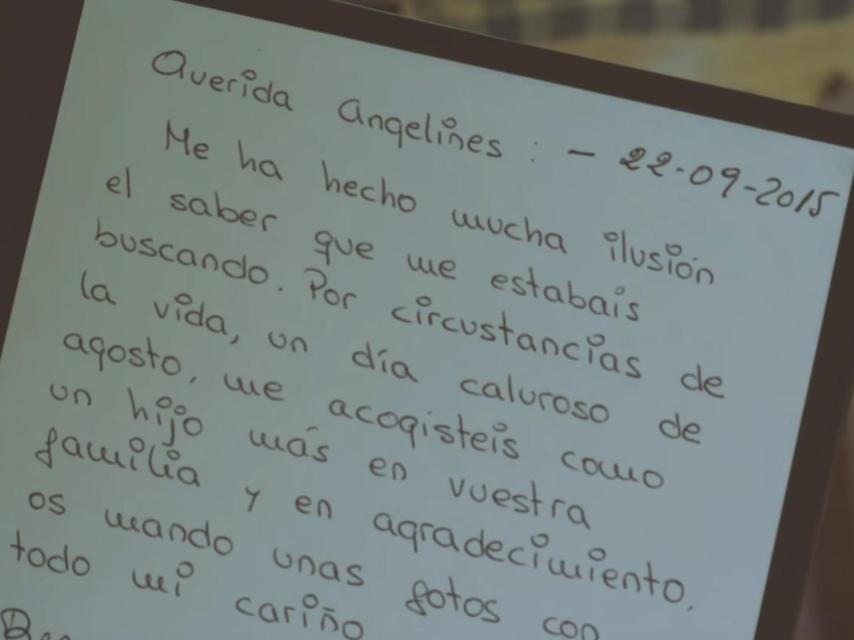 Querida Angelines : - 22-09-2015
Me ha hecho mucha ilusión
el saber que me estabais
buscando. Por circustancias de
la vida, un día caluroso de
agosto, me acogisteis como
un hijo más en vuestra
familia y en agradecimiento,
os mando unas fotos con
todo mi cariño